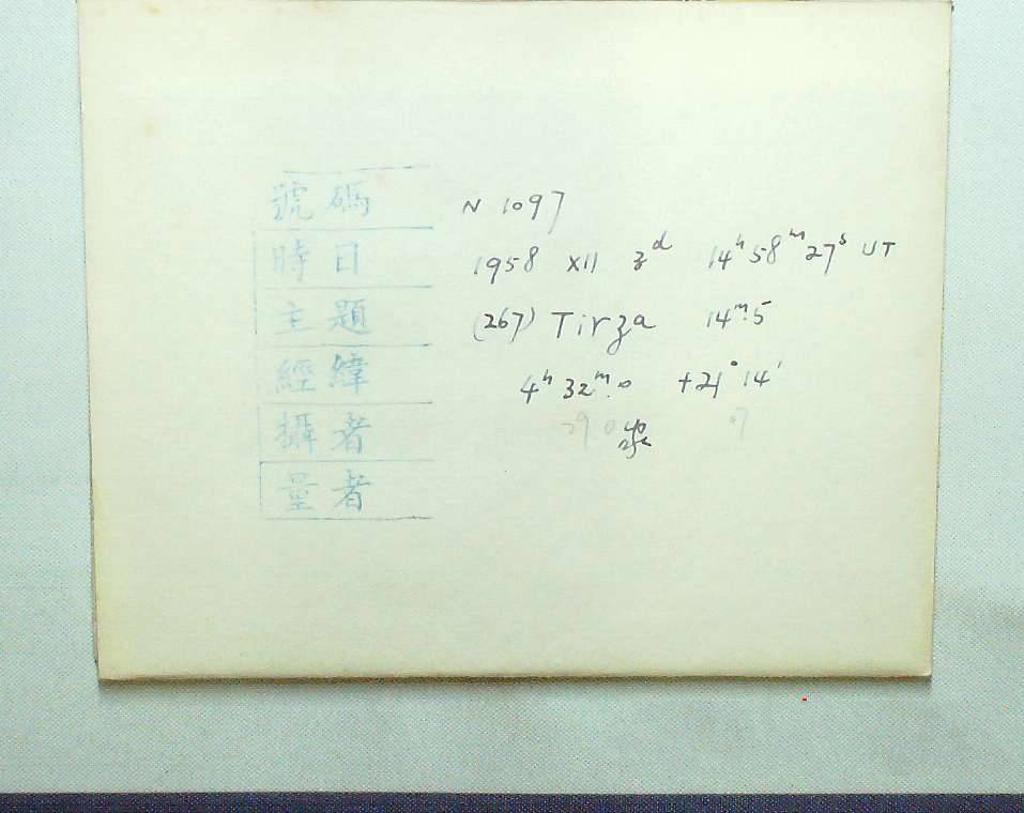 號碼 N 1097
時日 1958 XII 3ᵈ 14ʰ 58ᵐ 27ˢ UT
主題 (267) Tirza 14ᵐ.5
經緯 4ʰ 32ᵐ.0 +21° 14'
攝者 29 0 07
量者